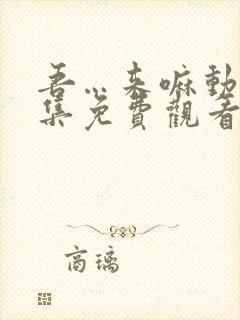 吾…来嘛動
集免費觀看
商璃